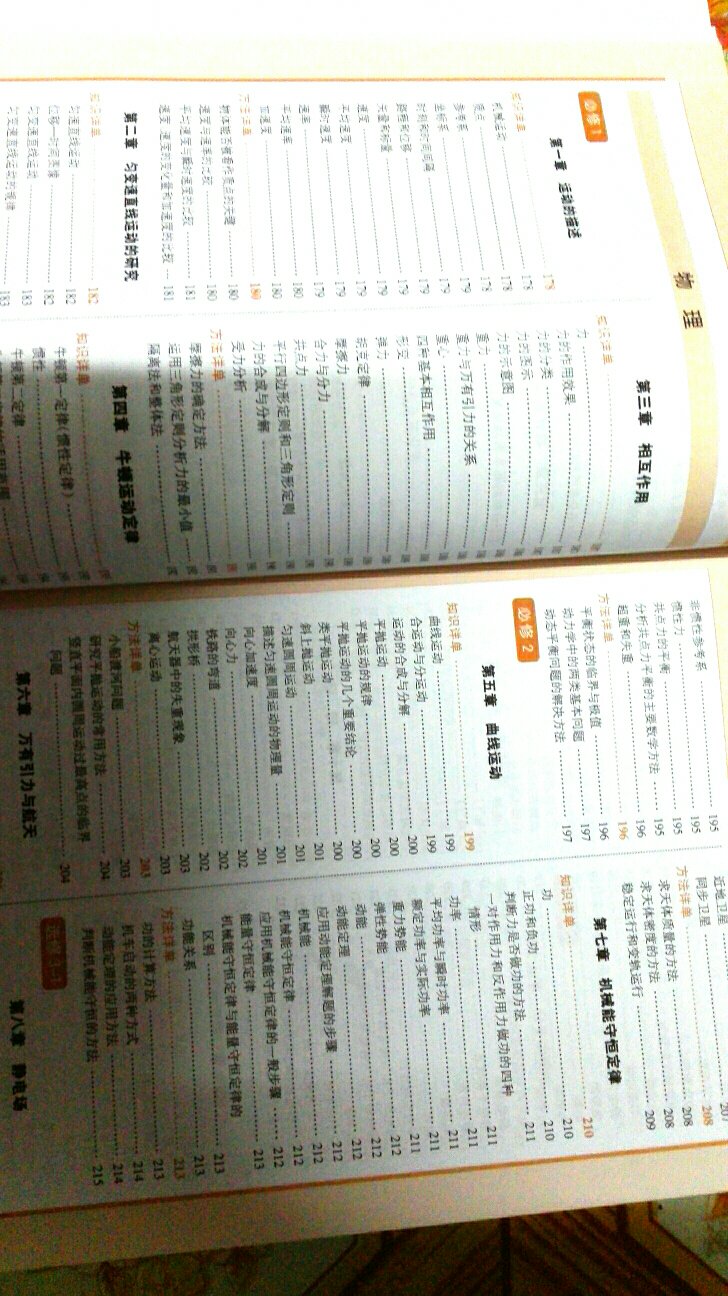 物 理
必修1
第一章 运动的描述
知识详单 178
机械运动 178
质点 178
参考系 178
坐标系 179
时刻和时间间隔 179
路程和位移 179
矢量和标量 179
速度 179
平均速度 179
瞬时速度 179
速率 180
平均速率 180
加速度 180
方法详单 180
物体能否被看作质点的关键 180
速度与速率的比较 180
平均速度与瞬时速度的比较 181
速度、速度的变化量和加速度的比较 181
第二章 匀变速直线运动的研究
知识详单 182
匀速直线运动 182
位移—时间图像 182
匀变速直线运动 183
匀变速直线运动的规律 183
第三章 相互作用
知识详单
力
力的作用效果
力的分类
力的图示
力的示意图
重力
重力与万有引力的关系
重心
四种基本相互作用
形变
弹力
胡克定律
摩擦力
合力与分力
共点力
平行四边形定则和三角形定则
力的合成与分解
受力分析
方法详单
摩擦力的确定方法
运用三角形定则分析力的最小值
隔离法和整体法
第四章 牛顿运动定律
知识详单
牛顿第一定律(惯性定律)
惯性
牛顿第二定律
非惯性参考系 195
惯性力 195
共点力的平衡 195
分析共点力平衡的主要数学方法 195
超重和失重 196
方法详单 196
平衡状态的临界与极值 196
动力学中的两类基本问题 197
动态平衡问题的解决方法 197
必修2
第五章 曲线运动
知识详单 199
曲线运动 199
合运动与分运动 199
运动的合成与分解 200
平抛运动 200
平抛运动的规律 200
平抛运动的几个重要结论 200
类平抛运动 201
斜上抛运动 201
匀速圆周运动 201
描述匀速圆周运动的物理量 201
向心加速度 202
向心力 202
铁路的弯道 202
拱形桥 203
航天器中的失重现象 203
离心运动 203
方法详单 203
小船渡河问题 203
研究平抛运动的常用方法 204
竖直平面内圆周运动过最高点的临界
问题 204
第六章 万有引力与航天
近地卫星 207
同步卫星
方法详单 208
求天体质量的方法 208
求天体密度的方法 208
稳定运行和变轨运行 209
第七章 机械能守恒定律
知识详单 210
功 210
正功和负功 210
判断力是否做功的方法 211
一对作用力和反作用力做功的四种
情形 211
功率 211
平均功率与瞬时功率 211
额定功率与实际功率 211
重力势能 212
弹性势能 212
动能 212
动能定理 212
应用动能定理解题的步骤 212
机械能 212
机械能守恒定律 212
应用机械能守恒定律的一般步骤 212
能量守恒定律 213
机械能守恒定律与能量守恒定律的
区别 213
功能关系 213
方法详单 213
功的计算方法 213
机车启动的两种方式 214
动能定理的应用方法 214
判断机械能守恒的方法 215
第八章 静电场